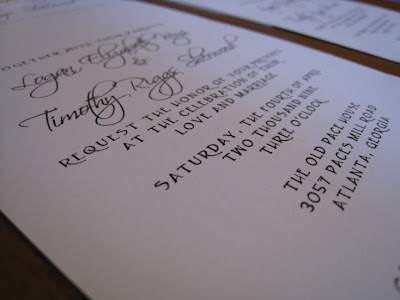 TOGETHER WITH THEIR FAMILIES
Logan Elizabeth
&
Timothy Riggs Sherwood
REQUEST THE HONOR OF YOUR PRESENCE
AT THE CELEBRATION OF THEIR
LOVE AND MARRIAGE
SATURDAY, THE FOURTH OF APRIL
TWO THOUSAND NINE
THREE O'CLOCK
THE OLD PACE HOUSE
3057 PACES MILL ROAD
ATLANTA, GEORGIA